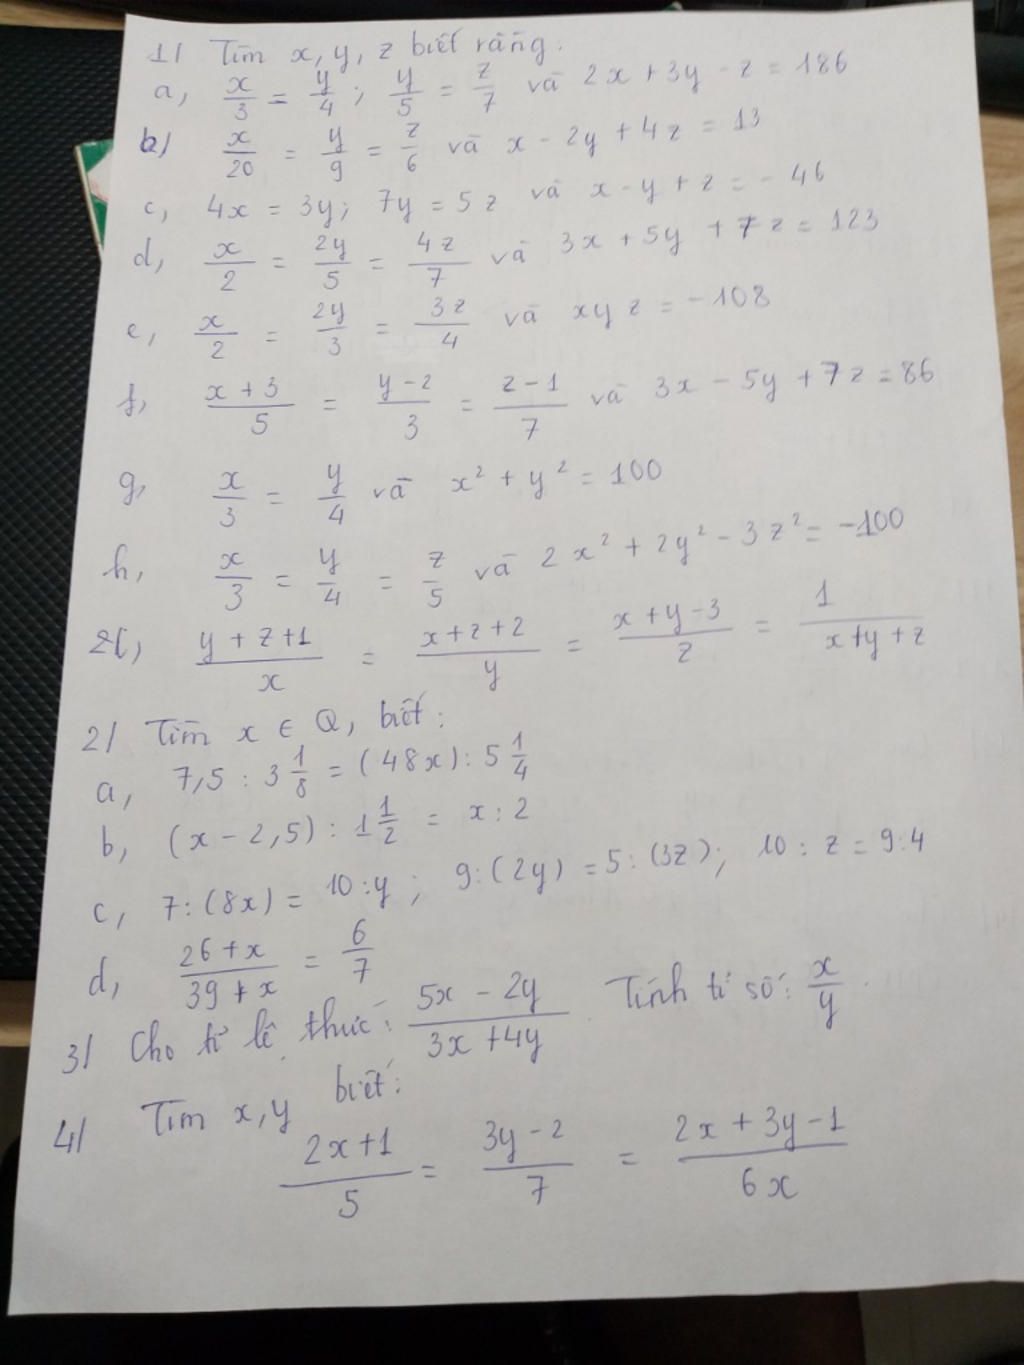 1/ Tìm x, y, z biết rằng:
a, x/3 = y/4 ; y/5 = z/7 và 2x + 3y - z = 186
b/ x/20 = y/9 = z/6 và x - 2y + 4z = 13
c, 4x = 3y; 7y = 5z và x - y + z = - 46
d, x/2 = 2y/5 = 4z/7 và 3x + 5y + 7z = 123
e, x/2 = 2y/3 = 3z/4 và xyz = -108
f, (x + 3)/5 = (y - 2)/3 = (z - 1)/7 và 3x - 5y + 7z = 86
g, x/3 = y/4 và x² + y² = 100
h, x/3 = y/4 = z/5 và 2x² + 2y² - 3z² = -100
(y + z + 1)/x = (x + z + 2)/y = (x + y - 3)/z = 1/(x + y + z)
2/ Tìm x ∈ Q, biết:
a, 7,5 : 3 1/8 = (48x) : 5 1/4
b, (x - 2,5) : 1 1/2 = x : 2
c, 7 : (8x) = 10 : y ; 9 : (2y) = 5 : (3z) ; 10 : z = 9 : 4
d, (26 + x)/(39 + x) = 6/7
3/ Cho tỉ lệ thức: (5x - 2y)/(3x + 4y). Tính tỉ số: x/y.
4/ Tìm x, y biết:
(2x + 1)/5 = (3y - 2)/7 = (2x + 3y - 1)/6x